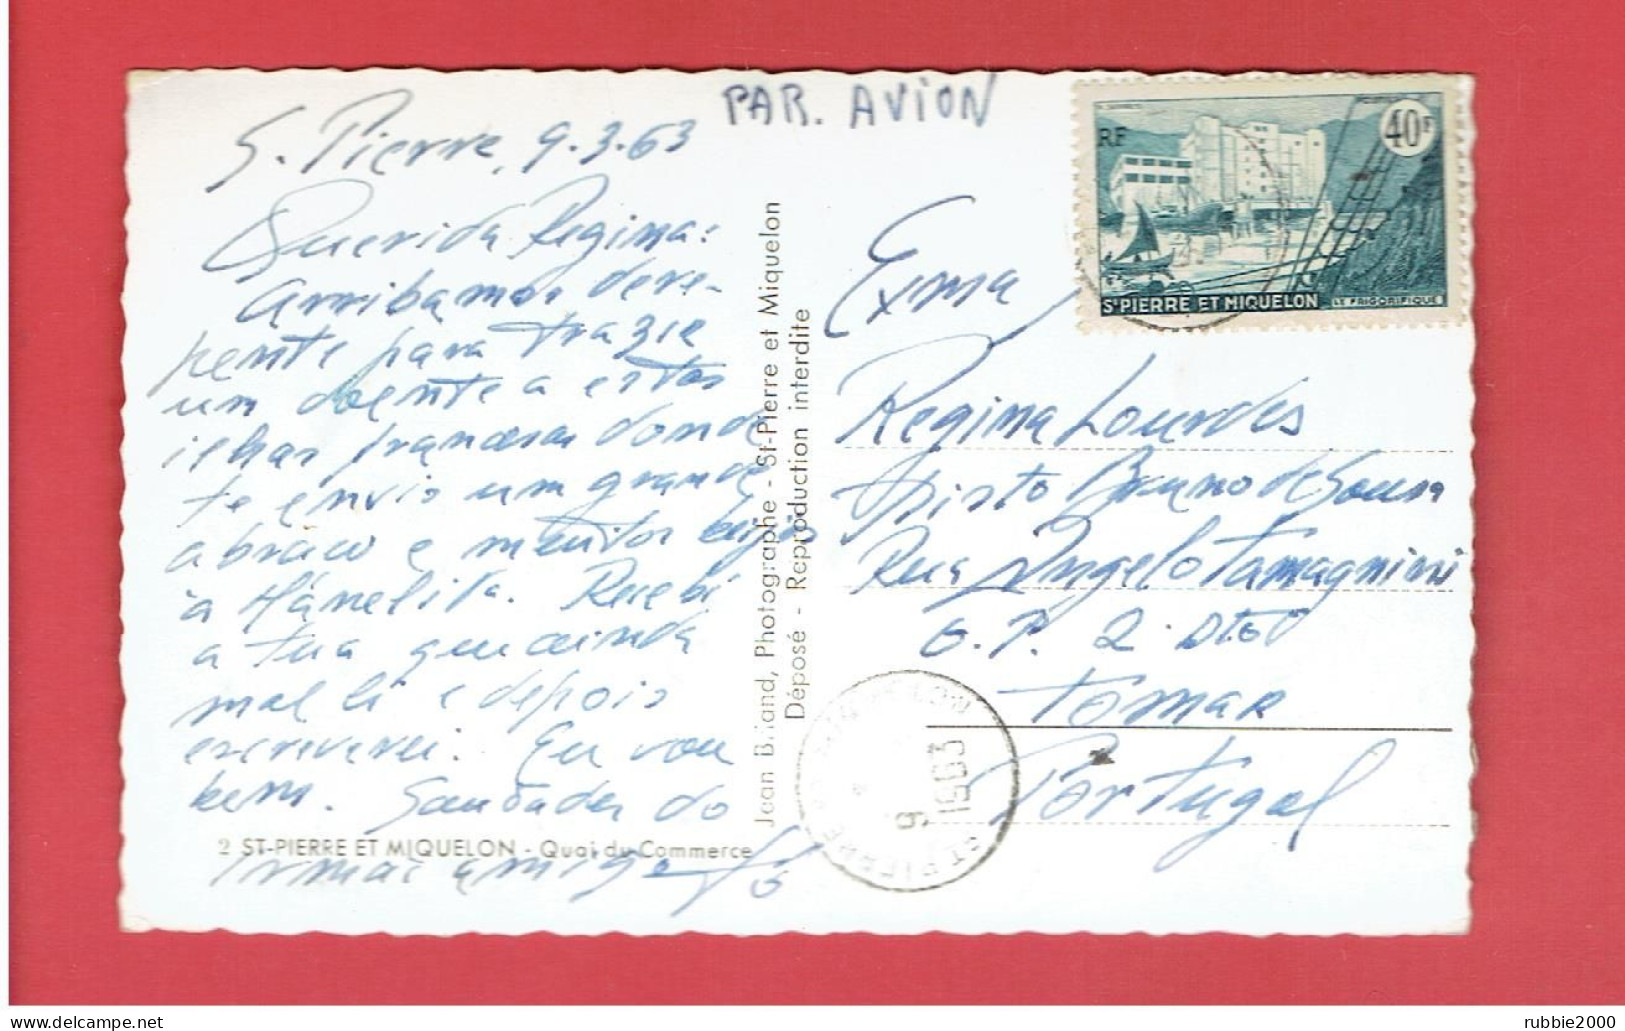 PAR. AVION
S. Pierre, 9.3.63
Querida Regina:
Arribamos dere-
pente para trazer
um doente a estas
ilhas francesas donde
te envio um grande
abraço e muitos beijos
à Manelita. Recebi
a tua que ainda
mal li e depois
escreverei. Eu vou
bem. Saudades do
irmão amigo
2 ST-PIERRE ET MIQUELON - Quai du Commerce
Jean Briand, Photographe - St-Pierre et Miquelon
Déposé - Reproduction interdite
RF
40F
ST PIERRE ET MIQUELON
LE FRIGORIFIQUE
Exma
Regina Lourdes
Bruno de Sousa
Rua Angelo Tamagnini
O.P. 2 Dto
Tomar
Portugal
ST PIERRE
9
1963
rubbie2000